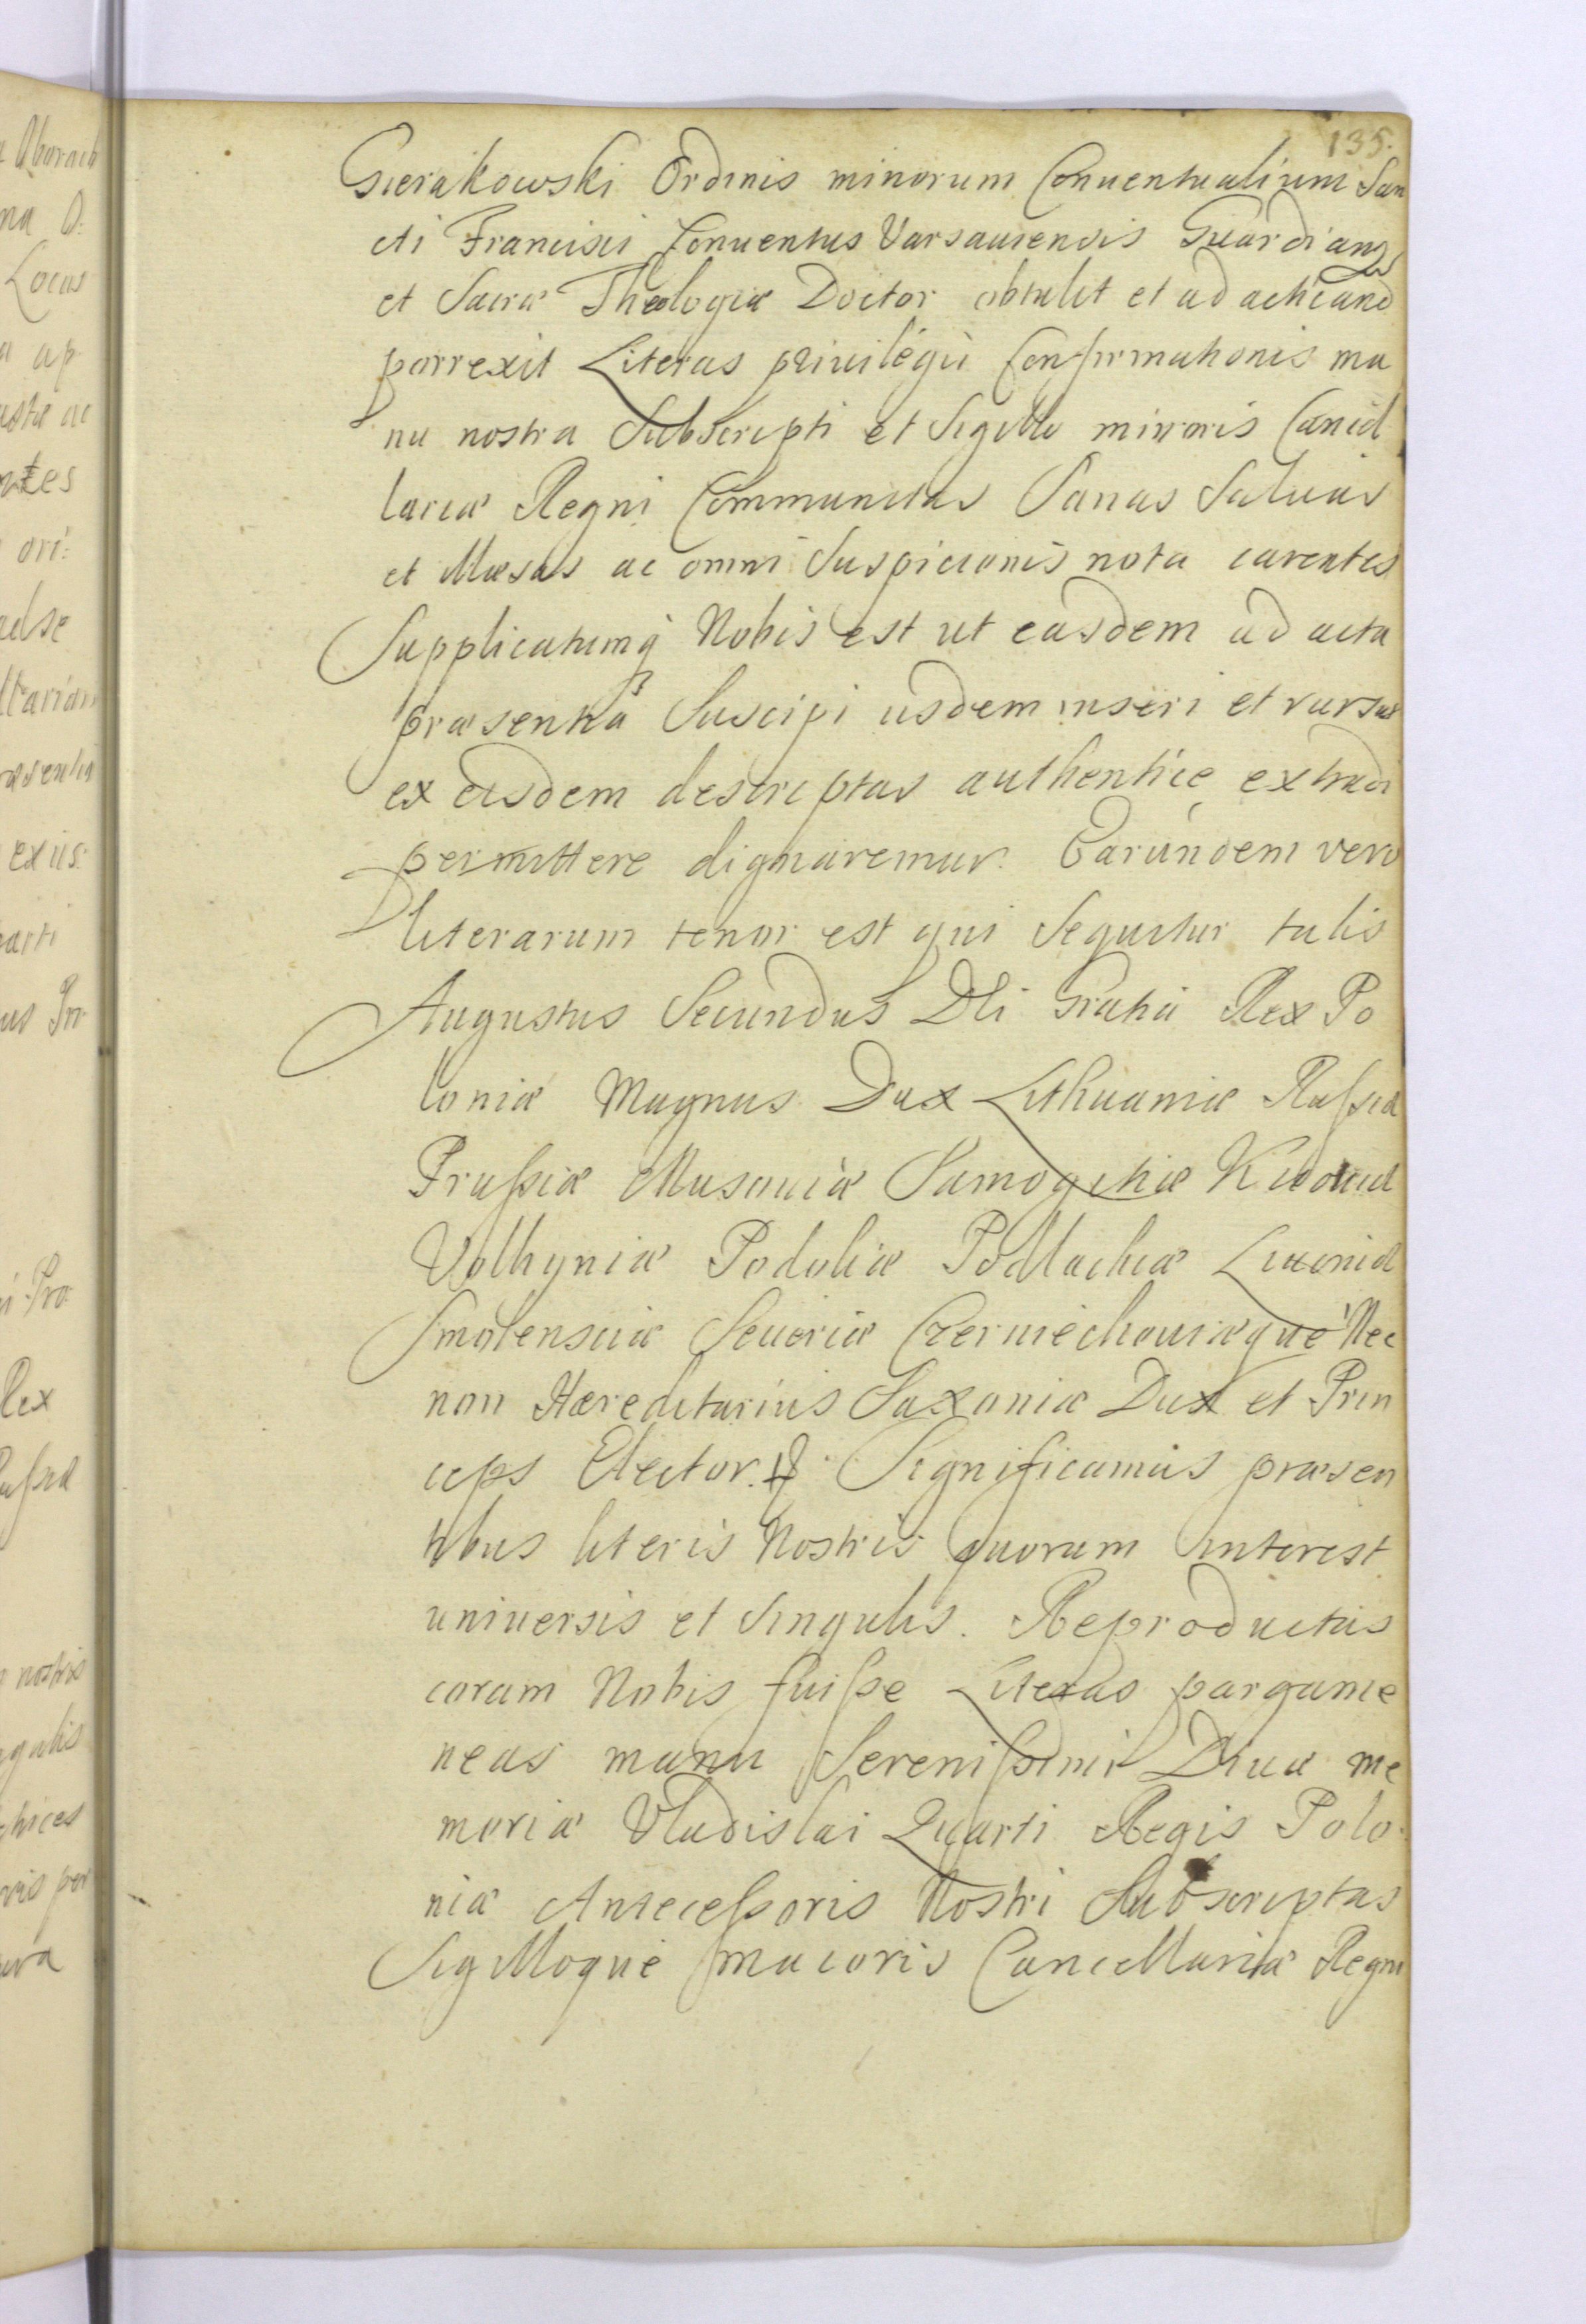 135.
Sierakowski Ordinis minorum Conuentualium San
cti Francisci Conuentus Varsauiensis Guardianus
et Sacræ Theologiæ Doctor obtulit et ad acticand
porrexit Literas priuilegii Confirmationis ma
nu nostra Subscripti et Sigillo minoris Cancel
lariæ Regni Communitas Sanas Saluas
et illæsas ac omni Suspicionis nota carentes
Supplicatumq̃ Nobis est ut easdem ad acta
præsentia Suscipi iisdem inseri et rursus
ex eisdem descriptas authentice extradi
permittere dignaremur. Earundem vero
literarum tenor est qui Sequitur talis
Augustus Secundus Dei Gratia Rex Po
loniæ Magnus Dux Lithuaniæ Russiæ
Prussiæ Masouiæ Samogitiæ Kiiouiæ
Volhyniæ Podoliæ Podlachiæ Liuoniæ
Smolensciæ Seueriæ Czerniechouiæque Nec
non Hæreditarius Saxoniæ Dux et Prin
ceps Elector. Significamus præsen
tibus literis Nostris quorum interest
uniuersis et Singulis. Reproductas
coram Nobis fuisse Literas pargame
neas manu Serenissimi Diuæ me
moriæ Vladislai Quarti Regis Polo
niæ Antecessoris Nostri Subscriptas
Sigilloque maioris Cancellariæ Regni